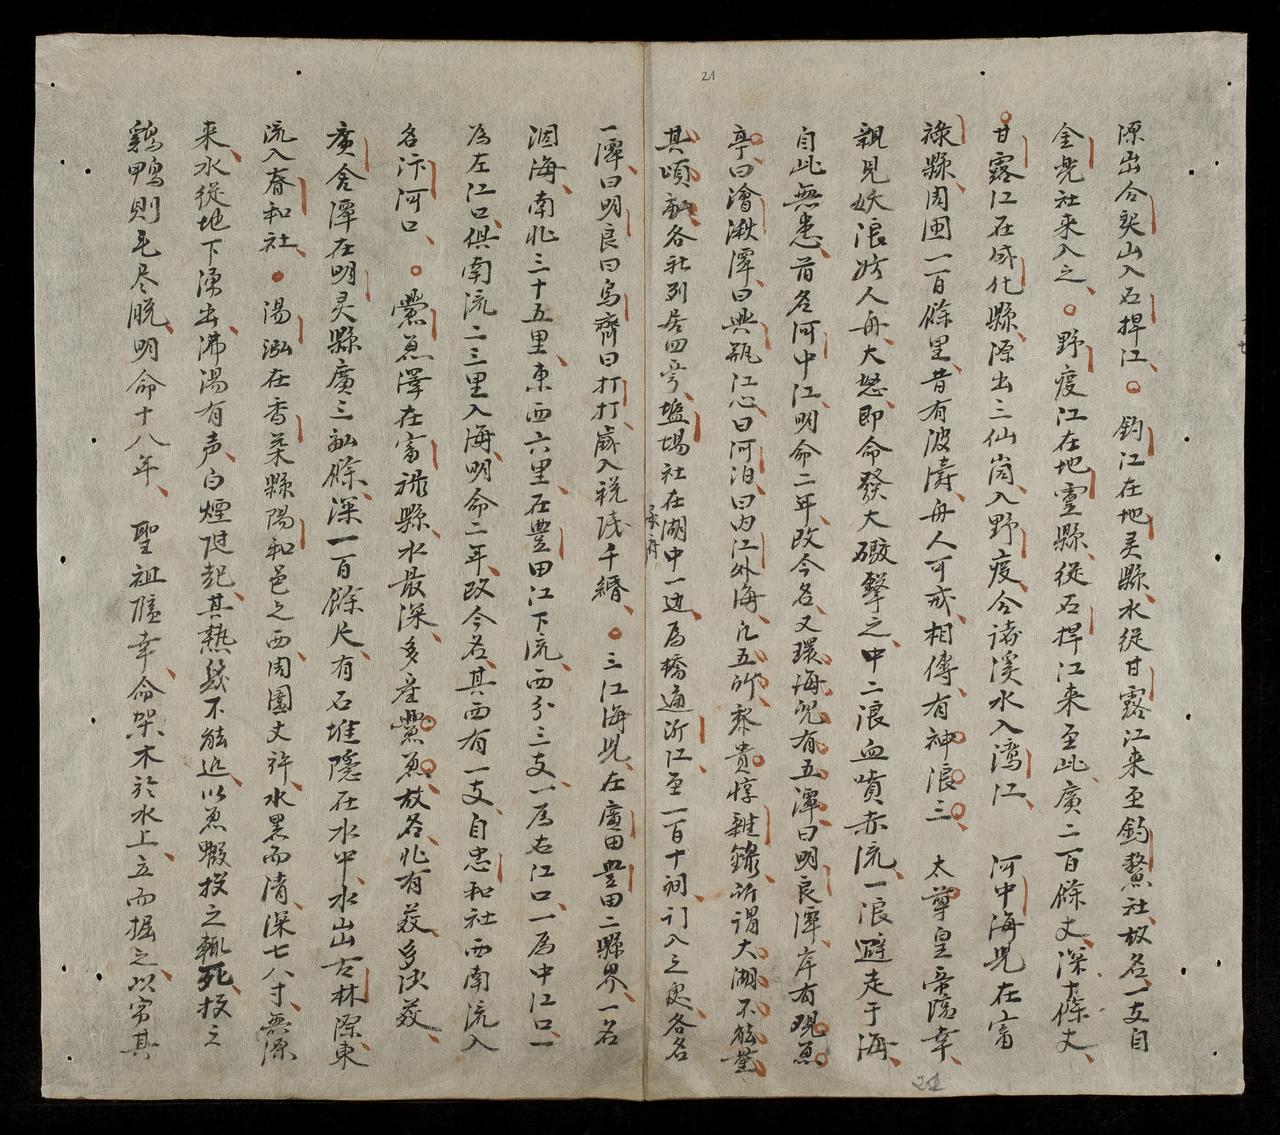 21
源出合契山入石捍江 釣江在地灵縣水從甘露江来至釣鰲社故名一支自
金兠社来入之 野度江在地靈縣從石捍江来至此廣二百餘丈深十餘丈
甘露江在成化縣源出三仙崗入野度今諸溪水入灣江 河中海児在富
祿縣周囲一百餘里昔有波濤舟人可戒相傳有神浪三 太尊皇帝隂幸
親見妖浪妨人舟大怒即命發大礮擊之中二浪血噴赤流一浪避走于海
自此無患 首名河中江明命二年改今名又環海児有五潭曰明良潭岸有观魚
亭曰澮湫潭曰興瓶江心曰河泊曰内江外海凢五所黎貴惇雜錄所謂大湖不能量
其頃畝各社列居四旁塩場社在湖中一边為橋通沂江至一百十祠訂入之處各名
承府
一潭曰明良曰烏齊曰打打歲入税錢千緡 三江海児在廣田豊田二縣界一名
涸海南北三十五里東西六里在豊田江下流西分三支一為右江口一為中江口一
為左江口俱南流二三里入海明命二年改今名其西有一支自忠和社西南流入
名汴河口 鱟魚澤在富祿縣水最深多産鱟魚故名北有菽多淡菽
奈舍潭在明灵縣廣三畝餘深一百餘尺有石堆隱在水中水出古林際東
流入春和社 湯泓在香茶縣陽和邑之西周圍丈許水黑而清深七八寸無源
来水從地下湧出沸湯有声白煙陡起其熱㡬不能近以魚蝦投之輒死投之
鷄鴨則毛尽脫明命十八年 聖祖隂幸命架木於水上立而掘之以穷其